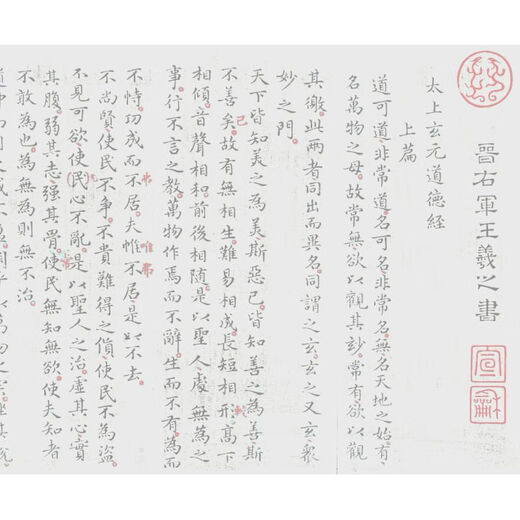 晉右軍王羲之書
宣
龢
太上玄元道德經
上篇
道可道。非常道。名可名。非常名。無名天地之始。有
名萬物之母。故常無欲以觀其妙。常有欲以觀
其徼。此兩者同出而異名。同謂之玄。玄之又玄。眾
妙之門。
天下皆知美之為美。斯惡已。皆知善之為善。斯
不善矣。故有無相生。難易相成。長短相形。高下
相傾。音聲相和。前後相隨。是以聖人處無為之
事。行不言之教。萬物作焉而不辭。生而不有。為而
不恃。功成而不居。夫惟不居。是以不去。
不尚賢。使民不爭。不貴難得之貨。使民不為盜。
不見可欲。使民心不亂。是以聖人之治。虛其心。實
其腹。弱其志。強其骨。使民無知無欲。使夫知者
不敢為也。為無為。則無不治。